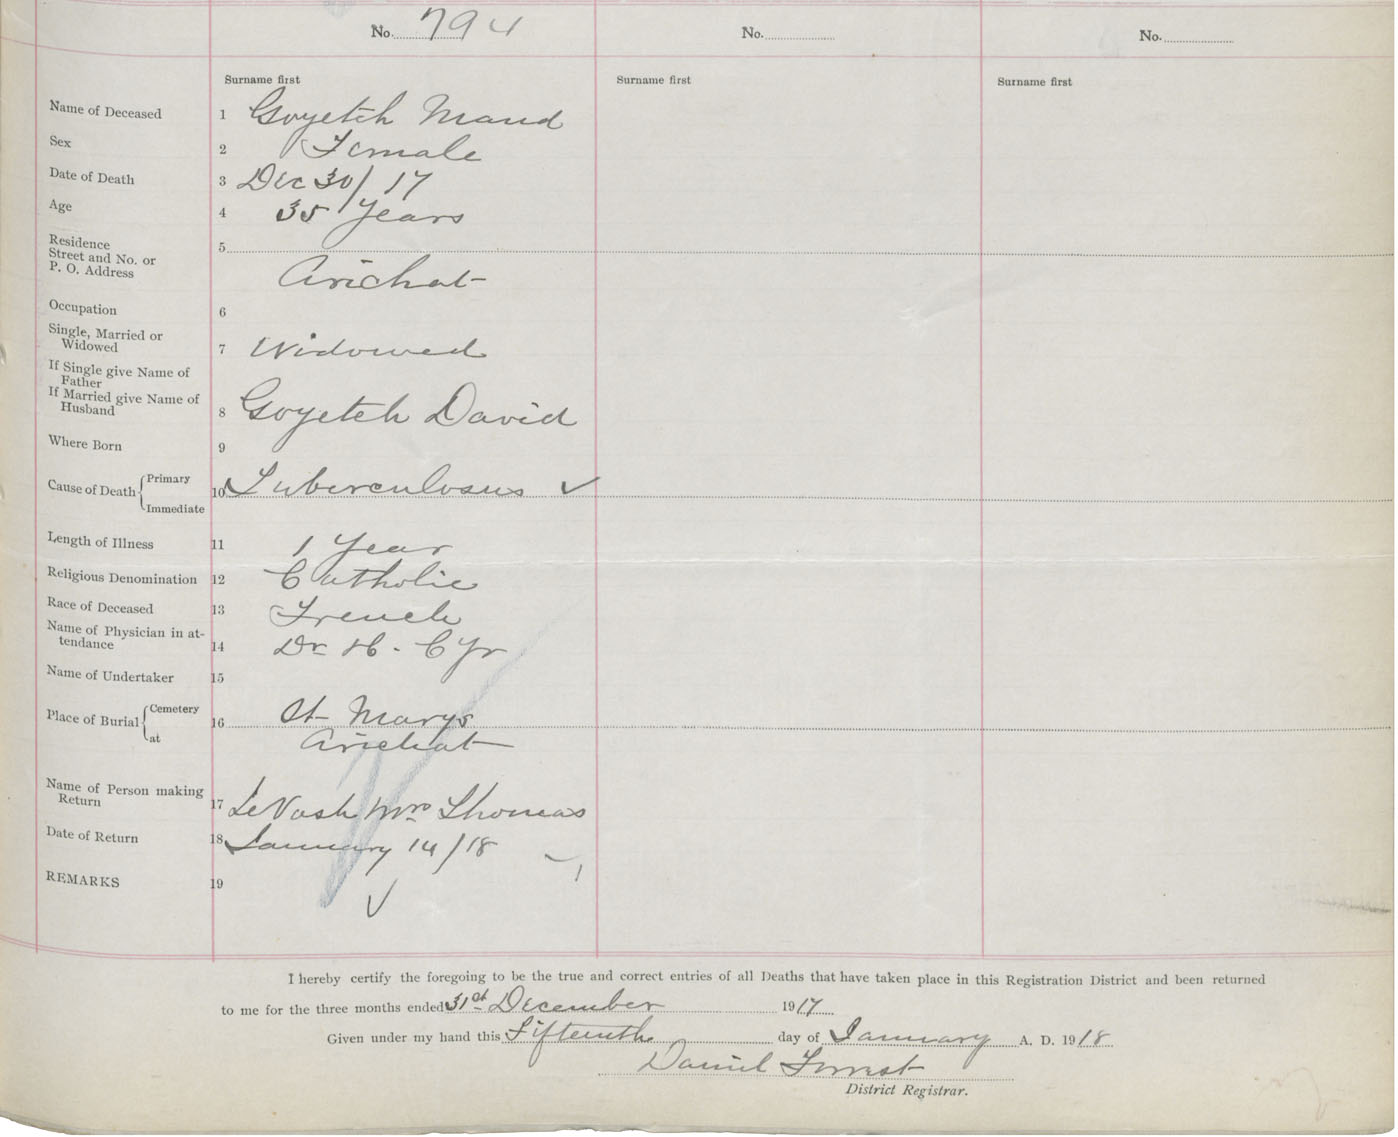 No. 794 No. No.
Surname first Surname first Surname first
Name of Deceased 1 Goyetch Maud
Sex 2 Female
Date of Death 3 Dec 30/17
Age 4 35 Years
Residence
Street and No. or 5
P. O. Address Arichat
Occupation 6
Single, Married or
Widowed 7 Widowed
If Single give Name of
Father
If Married give Name of
Husband 8 Goyetch David
Where Born 9
Cause of Death { Primary
10 Tuberculosus ✓
Immediate
Length of Illness 11 1 Year
Religious Denomination 12 Catholic
Race of Deceased 13 French
Name of Physician in at-
tendance 14 Dr H. Cyr
Name of Undertaker 15
Place of Burial { Cemetery 16 St Marys
at Arichat
Name of Person making
Return 17 LeVash Mrs Thomas
Date of Return 18 January 14/18
REMARKS 19
✓
I hereby certify the foregoing to be the true and correct entries of all Deaths that have taken place in this Registration District and been returned
to me for the three months ended 31st December 1917
Given under my hand this Fifteenth day of January A. D. 1918
Daniel Forrest
District Registrar.